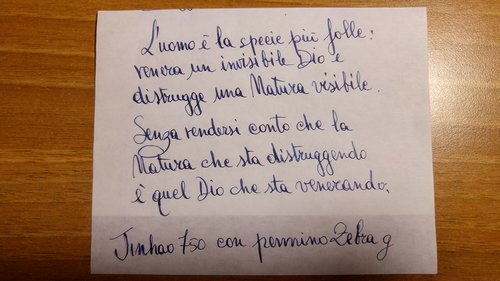 L'uomo è la specie più folle:
venera un invisibile Dio e
distrugge una Natura visibile.
Senza rendersi conto che la
Natura che sta distruggendo
è quel Dio che sta venerando.
Jinhao 750 con pennino Zebra g